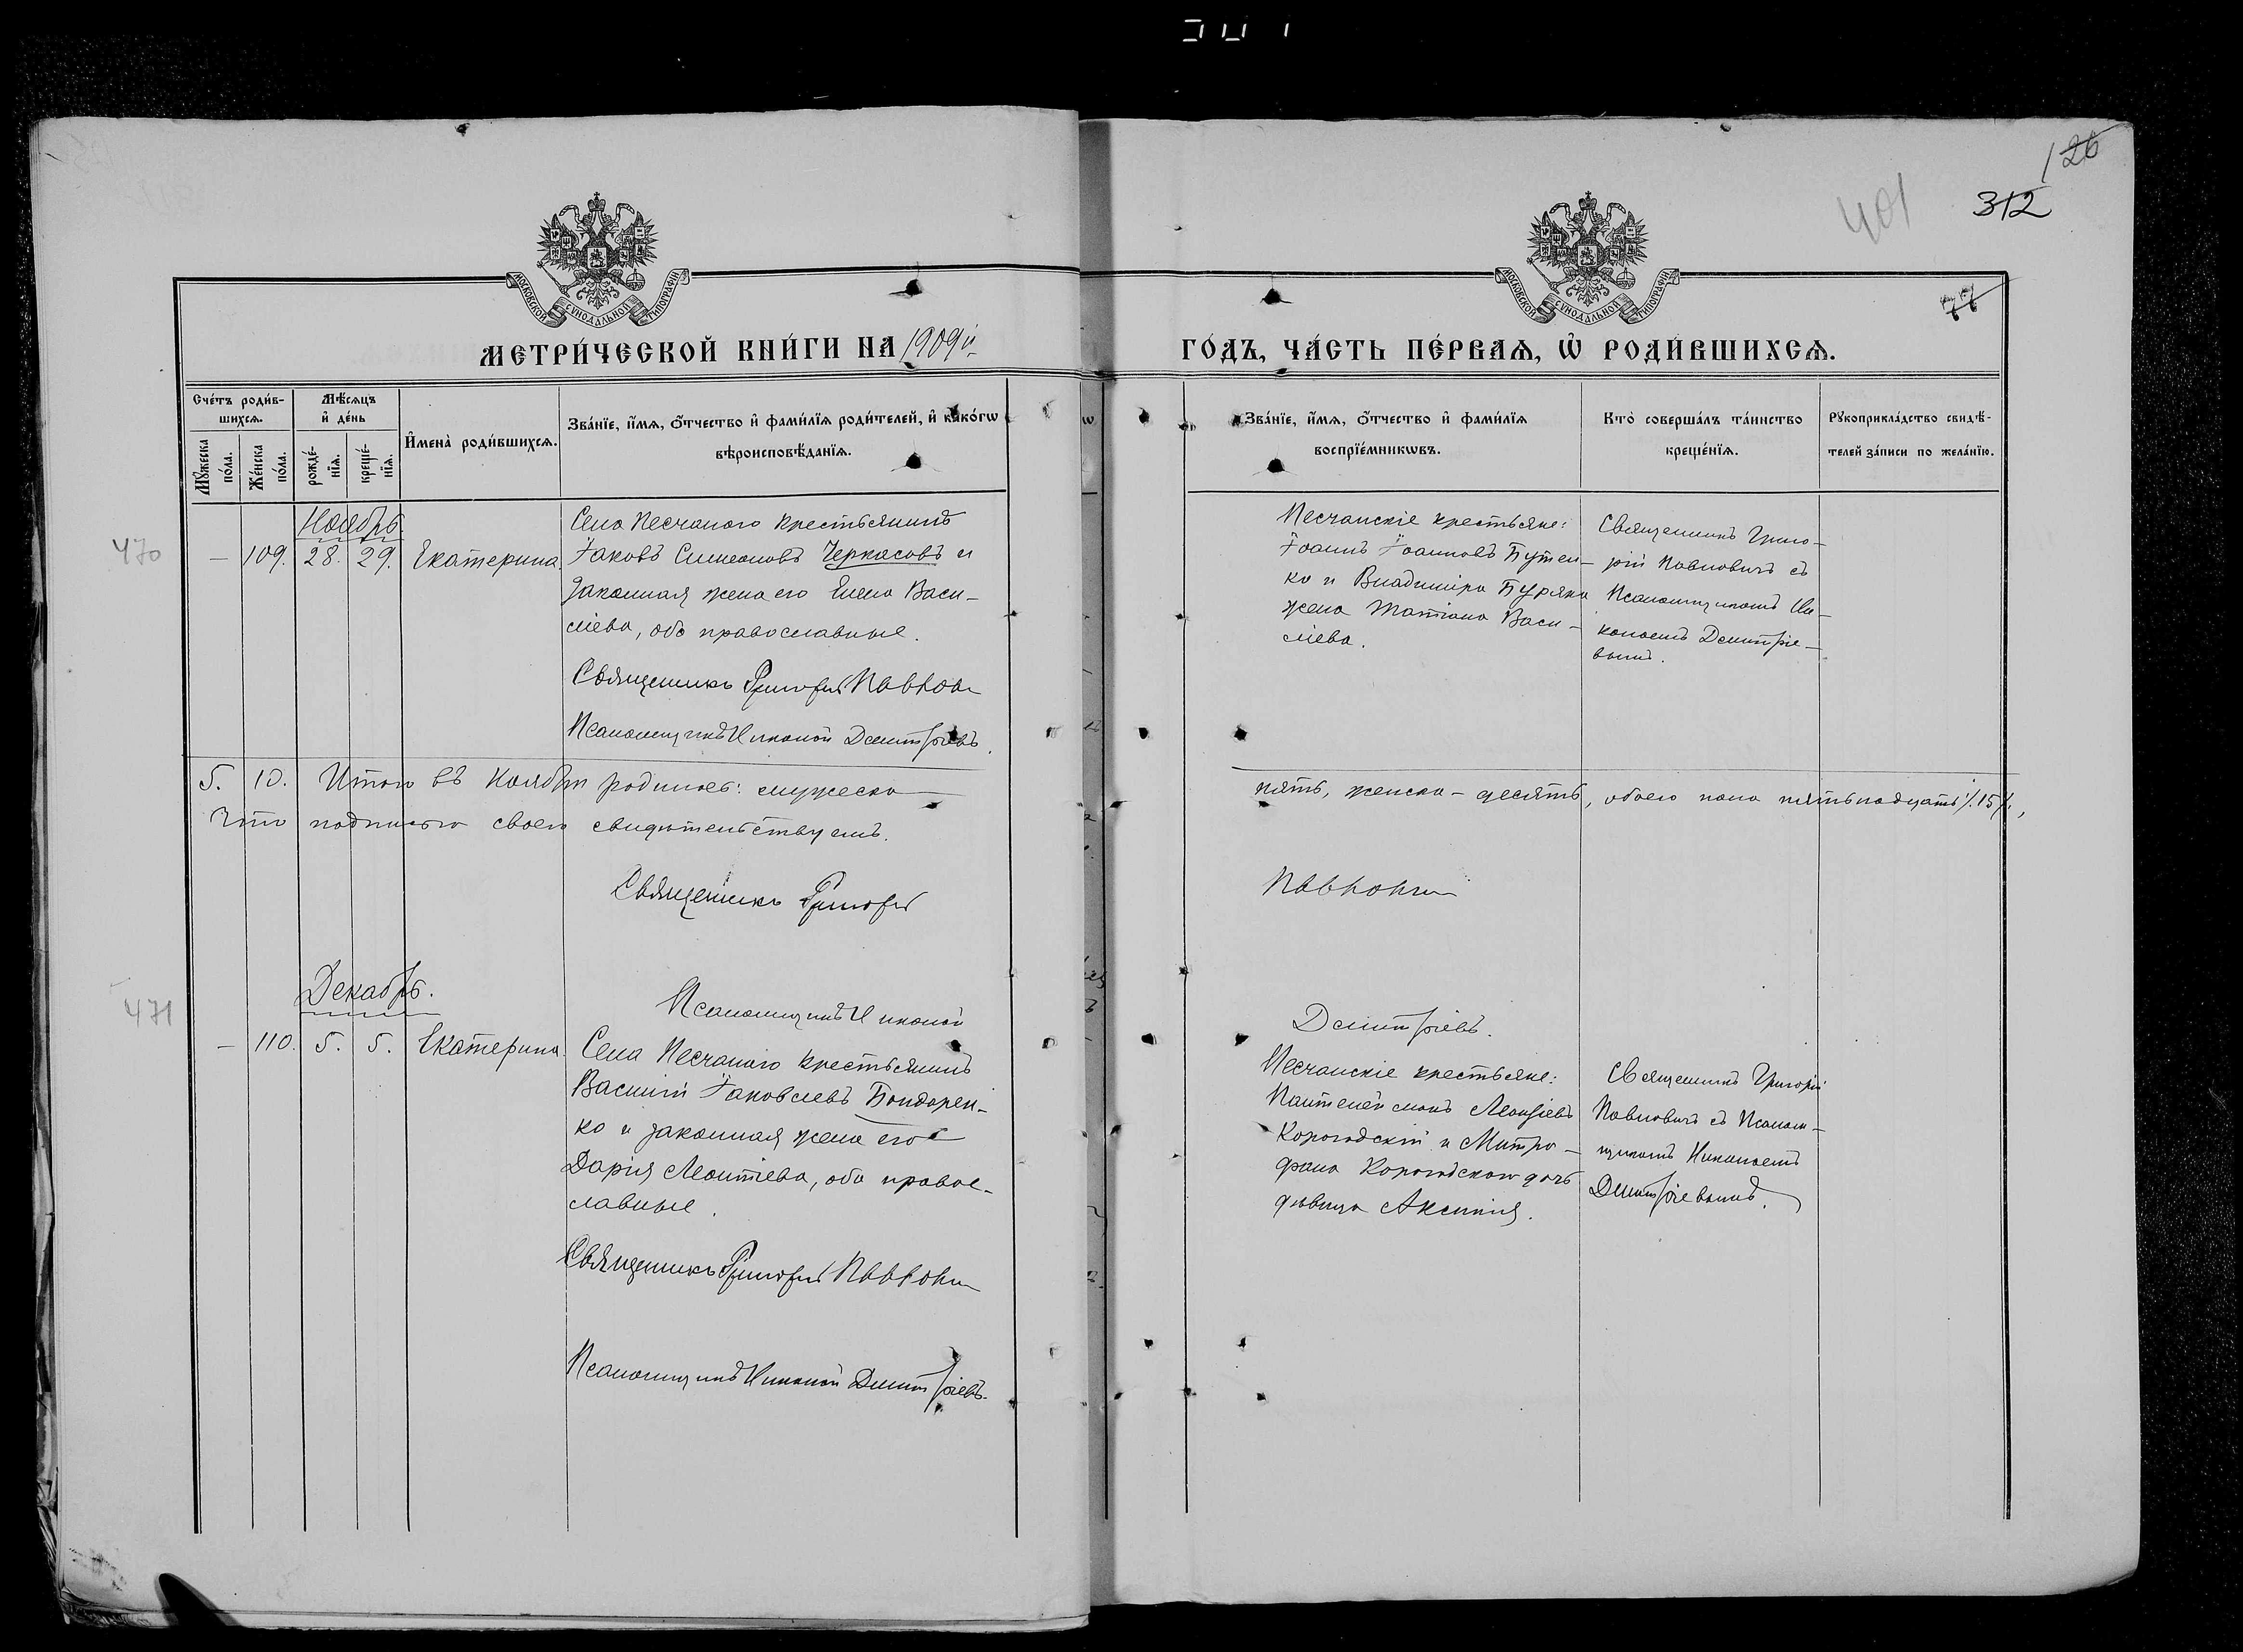 126
401
312
77
МОСКОВСКОЙ СѴНОДАЛЬНОЙ ТИПОГРАФІИ
МОСКОВСКОЙ СѴНОДАЛЬНОЙ ТИПОГРАФІИ
МЕТРИ́ЧЕСКОЙ КНИ́ГИ НА 1909й
ГО́ДЪ, ЧА́СТЬ ПЕ́РВАѦ, Ѡ҆ РОДИ́ВШИХСѦ.
Сче́тъ роди́в-
шихсѧ.
Мѣ́сѧцъ
и҆ де́нь
Мꙋ́жеска
по́ла.
Же́нска
по́ла.
рожде́-
нїѧ.
креще́-
нїѧ.
И҆мена̀ роди́вшихсѧ.
Зва́нїе, и҆́мѧ, ѻ҆́тчество и҆ фами́лїѧ роди́телей, и҆ како́гѡ
вѣроисповѣ́данїѧ.
Зва́нїе, и҆́мѧ, ѻ҆́тчество и҆ фами́лїѧ
воспрїе́мникѡвъ.
Кто̀ соверша́лъ та́инство
креще́нїѧ.
Рꙋкоприкла́дство свидѣ́-
телей за́писи по жела́нїю.
470
Ноябрь
— 109. 28. 29. Екатерина
Села Песчаного крестьянинъ
Іаковъ Симеоновъ Черкасовъ и
законная жена его Елена Васи-
ліева, оба православные.
Священникъ Григорій Павловичъ
Псаломщикъ Николай Димитріевъ.
Песчанскіе крестьяне:
Іоаннъ Іоанновъ Бутен-
ко и Владиміра Буряка
жена Татіана Васи-
ліева.
Священникъ Григо-
рій Павловичъ съ
Псаломщикомъ Ни-
колаемъ Димитріе-
вымъ.
5. 10. Итого въ Ноябрѣ родилось: мужеска
пять, женска - десять, обоего пола пятьнадцать /.15/.,
Что подписью своею свидѣтельствуемъ.
Священникъ Григорій
Павловичъ
Псаломщикъ Николай
Димитріевъ.
471
Декабрь.
— 110. 5. 5. Екатерина.
Села Песчаного крестьянинъ
Василій Іаковлевъ Бондарен-
ко и законная жена его
Дарія Леонтіева, оба право-
славные.
Священникъ Григорій Павловичъ
Псаломщикъ Николай Димитріевъ.
Песчанскіе крестьяне:
Пантелеимонъ Леонтіевъ
Корогодскій и Митро-
фана Корогодского дочь
дѣвица Аксинія.
Священникъ Григорій
Павловичъ съ Псалом-
щикомъ Николаемъ
Димитріевымъ.